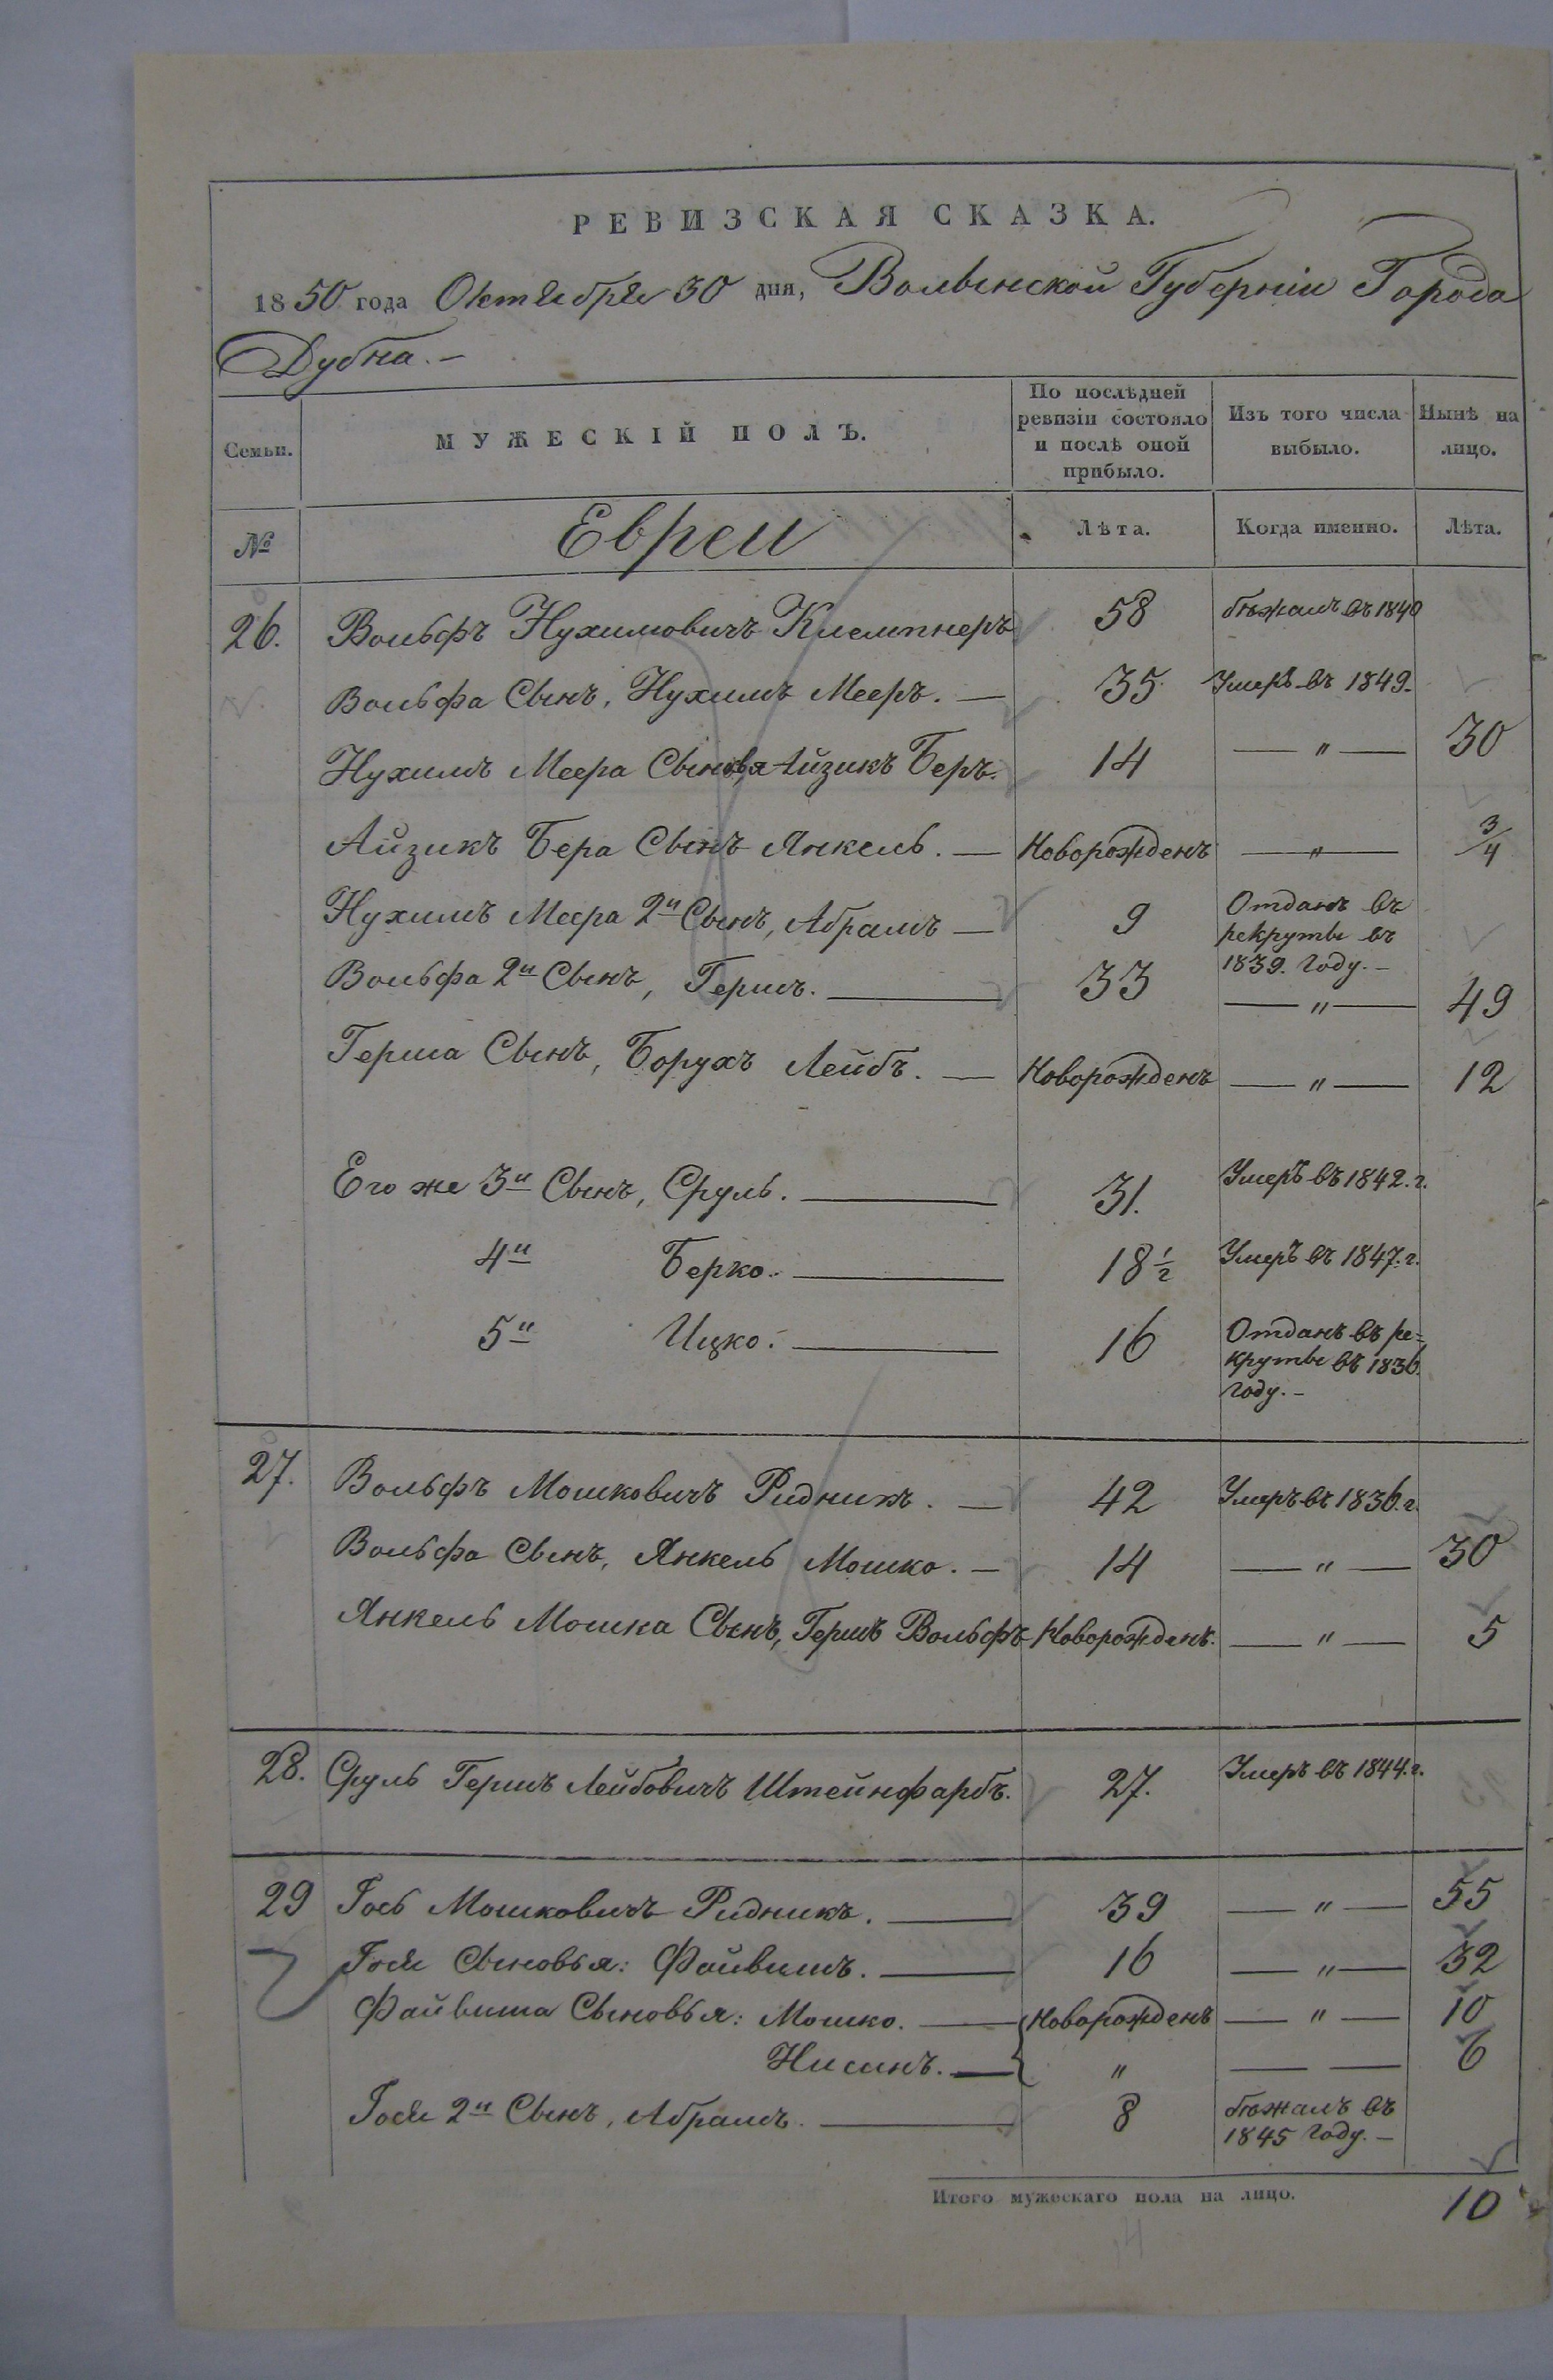 РЕВИЗСКАЯ СКАЗКА.
1850 года Октября 30 дня, Волынской Губерніи Города
Дубна. –
Семьи. МУЖЕСКІЙ ПОЛЪ. По послѣдней ревизіи состояло и послѣ оной прибыло. Изъ того числа выбыло. Нынѣ на лицо.
№ Евреи Лѣта. Когда именно. Лѣта.
26. Вольфъ Нухимовичъ Клемпнеръ 58 бѣжалъ въ 1840
Вольфа Сынъ, Нухимъ Мееръ. — 35 Умеръ въ 1849.
Нухимъ Меера Сыновья Айзикъ Беръ. 14 — " — 30
Айзикъ Бера Сынъ Янкель. — Новорожденъ — " — 3/4
Нухимъ Меера 2й Сынъ, Абрамъ — 9 Отданъ въ
рекруты въ
1839. Году. –
Вольфа 2й Сынъ, Гершъ. — 33 — " — 49
Герша Сынъ, Борухъ Лейбъ. — Новорожденъ — " — 12
Его же 3й Сынъ, Сруль. — 31. Умеръ въ 1842. г.
4й Берко. — 18 1/2 Умеръ въ 1847. г.
5й Ицко. — 16 Отданъ въ ре=
круты въ 1836.
Году. –
27. Вольфъ Мошковичъ Ридникъ. — 42 Умеръ въ 1836. г.
Вольфа Сынъ, Янкель Мошко. — 14 — " — 30
Янкель Мошка Сынъ, Гершъ Вольфъ Новорожденъ. — " — 5
28. Сруль Гершъ Лейбовичъ Штейнфарбъ. 27. Умеръ въ 1844. г.
29 Гось Мошковичъ Ридникъ. — 39 — " — 55
Гося Сыновья: Файвишъ. — 16 — " — 32
Файвиша Сыновья: Мошко. — Новорожденъ — " — 10
Нисинъ. — " — — 6
Гося 2й Сынъ, Абрамъ. — 8 бѣжалъ въ
1845 Году. –
Итого мужескаго пола на лицо. 10